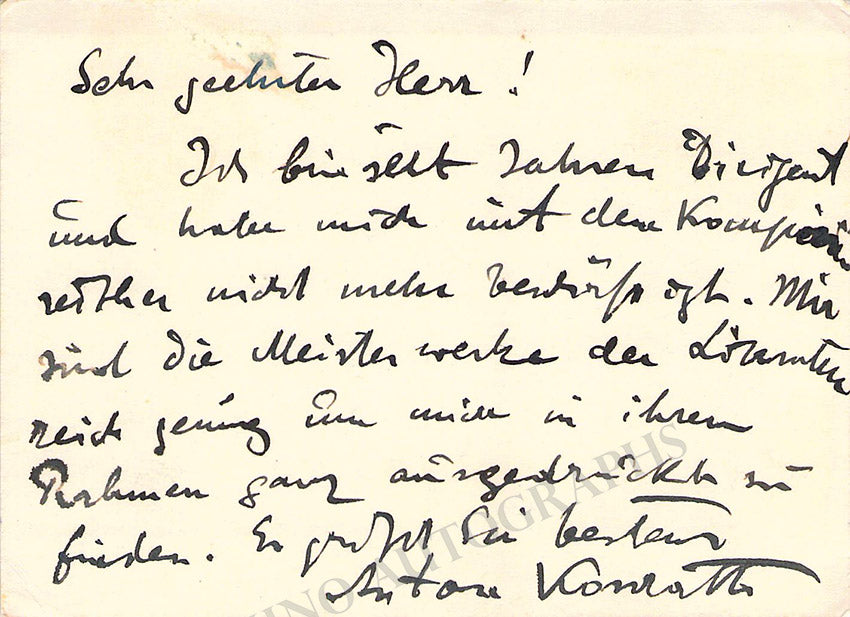 Sehr geehrter Herr!
Ich bin seit Jahren Dirigent
und habe mich mit dem Komponieren
seither nicht mehr beschäftigt. Mir
sind die Meisterwerke der Literatur
reich genug um mich in ihrem
Rahmen ganz ausgedrückt zu
finden. Es grüßt Sie bestens
Anton Konrath
AUTOGRAPHS